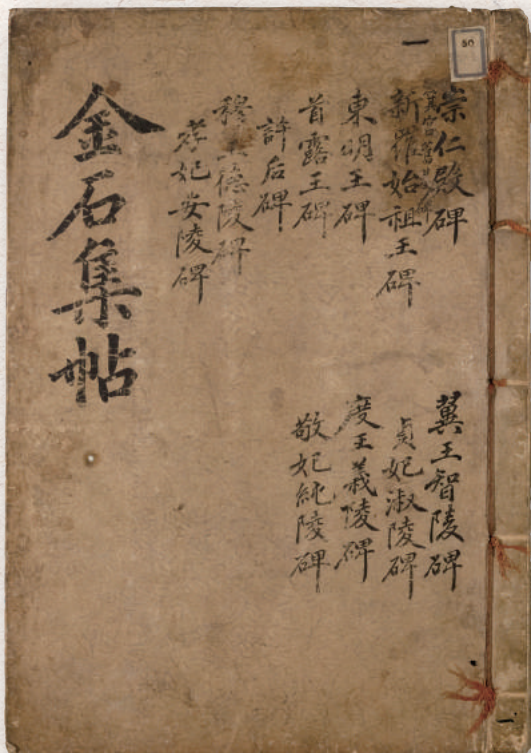 50
一
崇仁殿碑
新羅始祖王碑
東明王碑
首露王碑
許后碑
穆王德陵碑
孝妃安陵碑
翼王智陵碑
貞妃淑陵碑
度王義陵碑
敬妃純陵碑
金石集帖
一